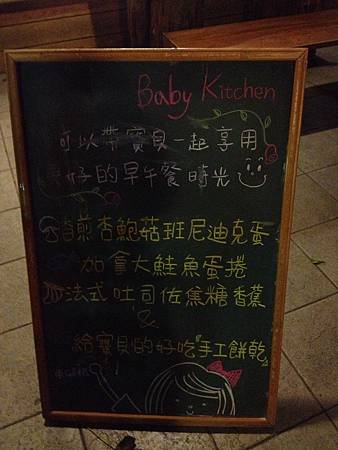 Baby Kitchen
可以帶寶貝一起享用
美好的早午餐時光
香煎杏鮑菇班尼迪克蛋
加拿大鮭魚蛋捲
法式吐司佐焦糖香蕉
&
給寶貝的好吃手工餅乾